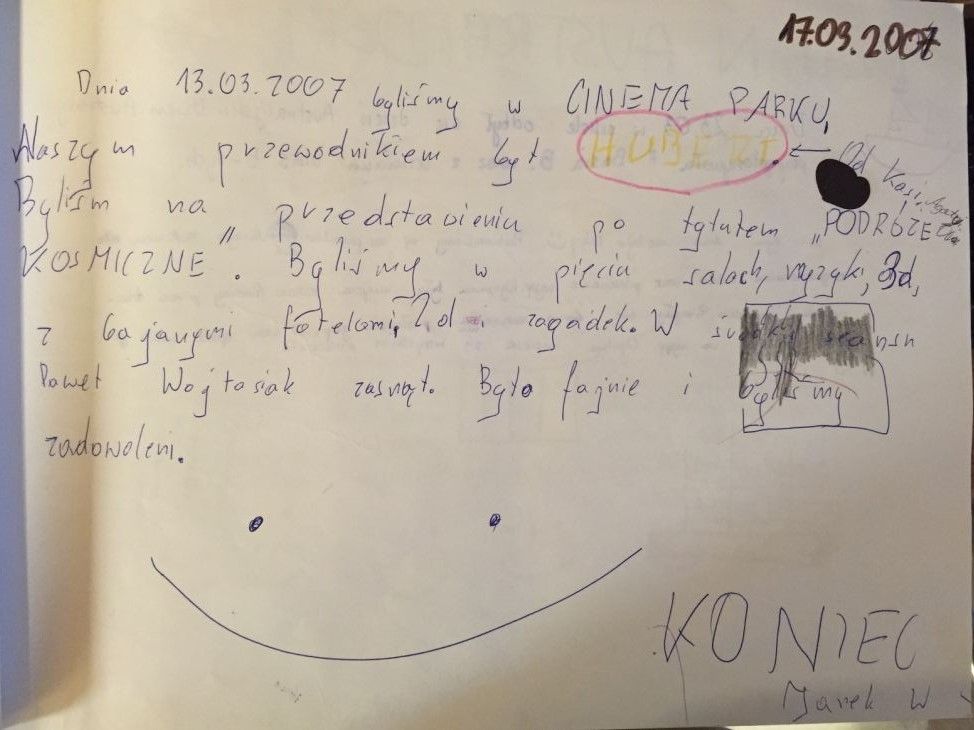 17.03.2007
Dnia 13.03.2007 byliśmy w CINEMA PARKU.
Naszym przewodnikiem był HUBERT. ← Od Kasi,
Byliśm na przedstawieniu po tytułem „PODRÓŻE
KOSMICZNE". Byliśmy w pięciu salach, 3d,
z bajanymi fotelami, 2d i zagadek. W seansu
Paweł Wojtasiak zasnął. Było fajnie i byliśmy
zadowoleni.
KONIEC
Jarek W